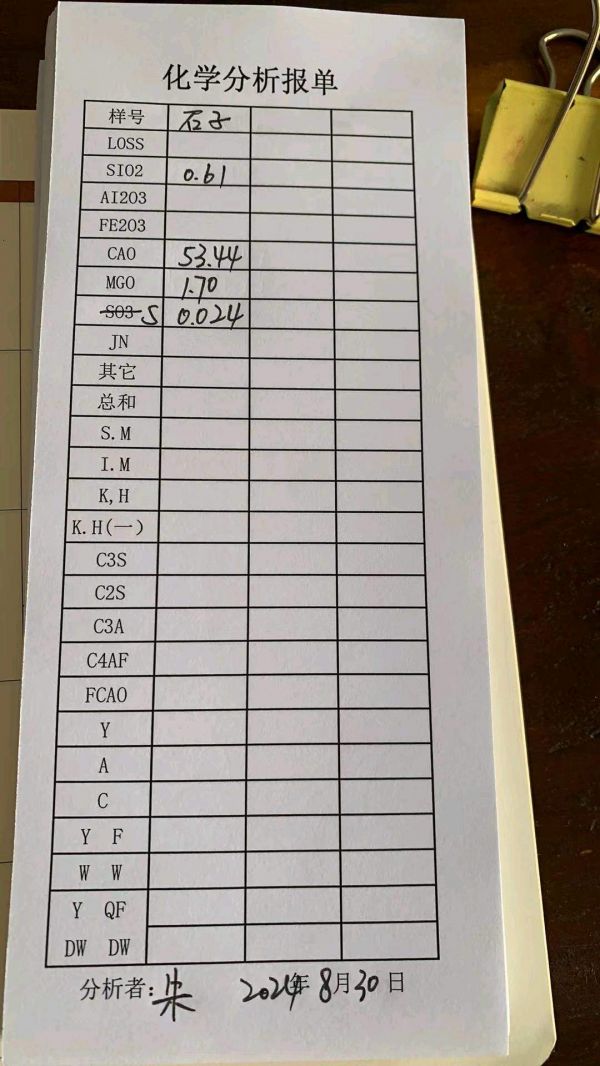 化学分析报单
样号 石子
LOSS
SIO2 0.61
AI2O3
FE2O3
CAO 53.44
MGO 1.70
SO3 S 0.024
JN
其它
总和
S.M
I.M
K,H
K.H(一)
C3S
C2S
C3A
C4AF
FCAO
Y
A
C
Y F
W W
Y QF
DW DW
分析者:朱 2024年8月30日